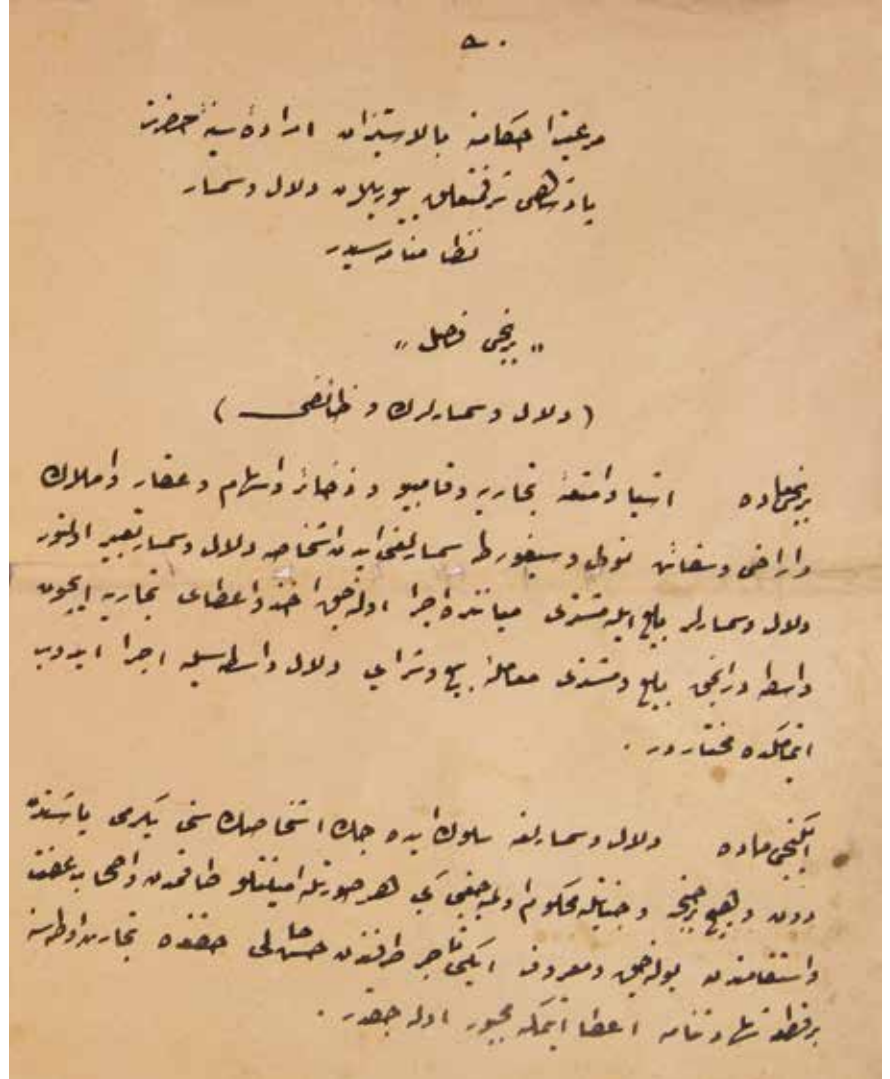 مرعيت احكامنه بالاستيذان اراده سنيه حضرت
پادشاهى شرفتعلق بيوريلان دلال و سمسار
نظامنامه سيدر
" برنجى فصل "
( دلال و سمسارلرك وظائفى )
برنجى ماده اشيا و امتعه تجاريه و قامبيو و ذخائر و اسهام و عقار و املاك
و اراضى و سفائن نولى و سيغورطه سمسارلغى ايدن اشخاصه دلال و سمسار تعبير اولنور
دلال و سمسارلر بايع ايله مشترى مياننده اجرا اوله جق اخذ و اعطاى تجاريه ايچون
واسطه در انجق بايع و مشترى معامله بيع و شرايى دلال واسطه سيله اجرا ايدوب
ايتمامكده مختاردر .
ايكنجى ماده دلال و سمسارلغه سلوك ايده جك اشخاصك سنى يكرمى ياشندن
دون و هيچ بر جنحه و جنايتله محكوم اولميه جغى كبى هر صورتله امنيتلو طاقمدن و اصحاب عفت
و استقامتدن بوله جق و معروف ايكى تاجر طرفندن حسن حالى حقنده تجارت اوطه سنه
بر قطعه شهادتنامه اعطا ايتمكه مجبور اوله جقدر .